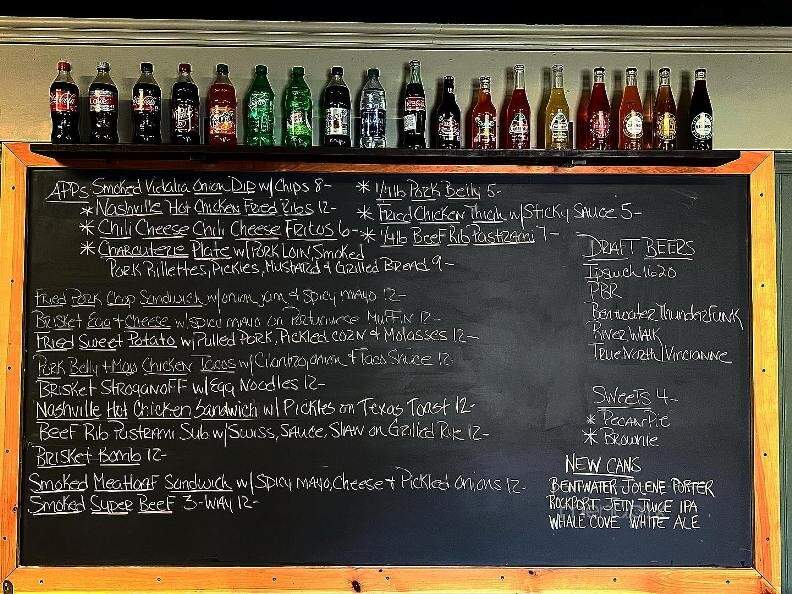 APPS Smoked Vidalia Onion Dip w/Chips 8-
* Nashville Hot Chicken Fried Ribs 12-
* Chili Cheese Chili Cheese Fritos 6-
* Charcuterie Plate w/Pork Loin, Smoked
Pork Rillettes, Pickles, Mustard & Grilled Bread 9-
* 1/4lb Pork Belly 5-
* Fried Chicken Thigh w/Sticky Sauce 5-
* 1/4lb Beef Rib Pastrami 7-
Fried Pork Chop Sandwich w/onion jam & Spicy Mayo 12-
Brisket Egg & Cheese w/spicy mayo on Portuguese Muffin 12-
Fried Sweet Potato w/Pulled Pork, Pickled Corn & Molasses 12-
Pork Belly & Mojo Chicken Tacos w/Cilantro, onion & Taco Sauce 12-
Brisket Stroganoff w/Egg Noodles 12-
Nashville Hot Chicken Sandwich w/ Pickles on Texas Toast 12-
Beef Rib Pastrami Sub w/Swiss, Sauce, Slaw on Grilled Rye 12-
Brisket Bomb 12-
Smoked Meatloaf Sandwich w/Spicy mayo, Cheese & Pickled onions 12-
Smoked Super Beef 3-Way 12-
Draft Beers
Ipswich 1620
PBR
Bentwater Thunderfunk
River Walk
True North/Vivianne
Sweets 4-
* Pecan Pie
* Brownie
New Cans
Bentwater Jolene Porter
Rockport Jetty Juice IPA
Whale Cove White Ale